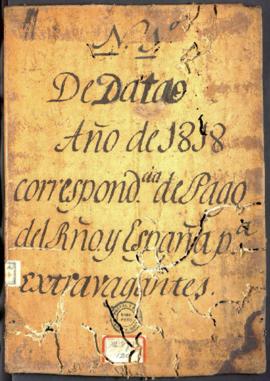 N. 1º
De Datas
Año de 1818
correspond.cia de Pago
del Rño y España p.a
extravagantes.